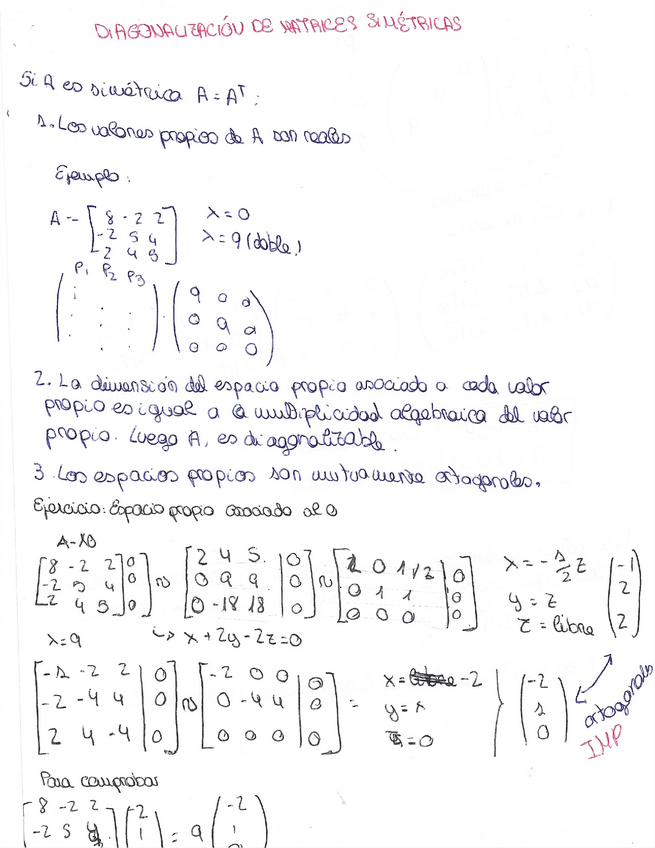 DIAGONALIZACIÓN DE MATRICES SIMÉTRICAS
Si A es simétrica A = Aᵀ:
1. Los valores propios de A son reales
Ejemplo:
A = [8 -2 2] λ = 0
[-2 5 4] λ = 9 (doble)
[2 4 5]
P₁ P₂ P₃
(9 0 0)
(0 9 0)
(0 0 0)
2. La dimensión del espacio propio asociado a cada valor
propio es igual a la multiplicidad algebraica del valor
propio. Luego A, es diagonalizable.
3. Los espacios propios son mutuamente ortogonales.
Ejercicio: Espacio propio asociado al 0
[8 -2 2 | 0] ~ [2 4 5 | 0] ~ [1 0 1/2 | 0] x = -1/2 z (-1)
[-2 5 4 | 0] [0 9 9 | 0] [0 1 1 | 0] y = z (2)
[2 4 5 | 0] [0 -18 18 | 0] [0 0 0 | 0] z = libre (2)
λ = 9 ↳ x + 2y - 2z = 0
[-1 -2 2 | 0] ~ [-2 0 0 | 0] = x = -2 (-2)
[-2 -4 4 | 0] [0 -4 4 | 0] (1)
[2 4 -4 | 0] [0 0 0 | 0] = 0 (0)
ortogonales
IMP
Para comprobar
[8 -2 2] [-2] = 9 (-2)
[-2 5 4] [1] (1)